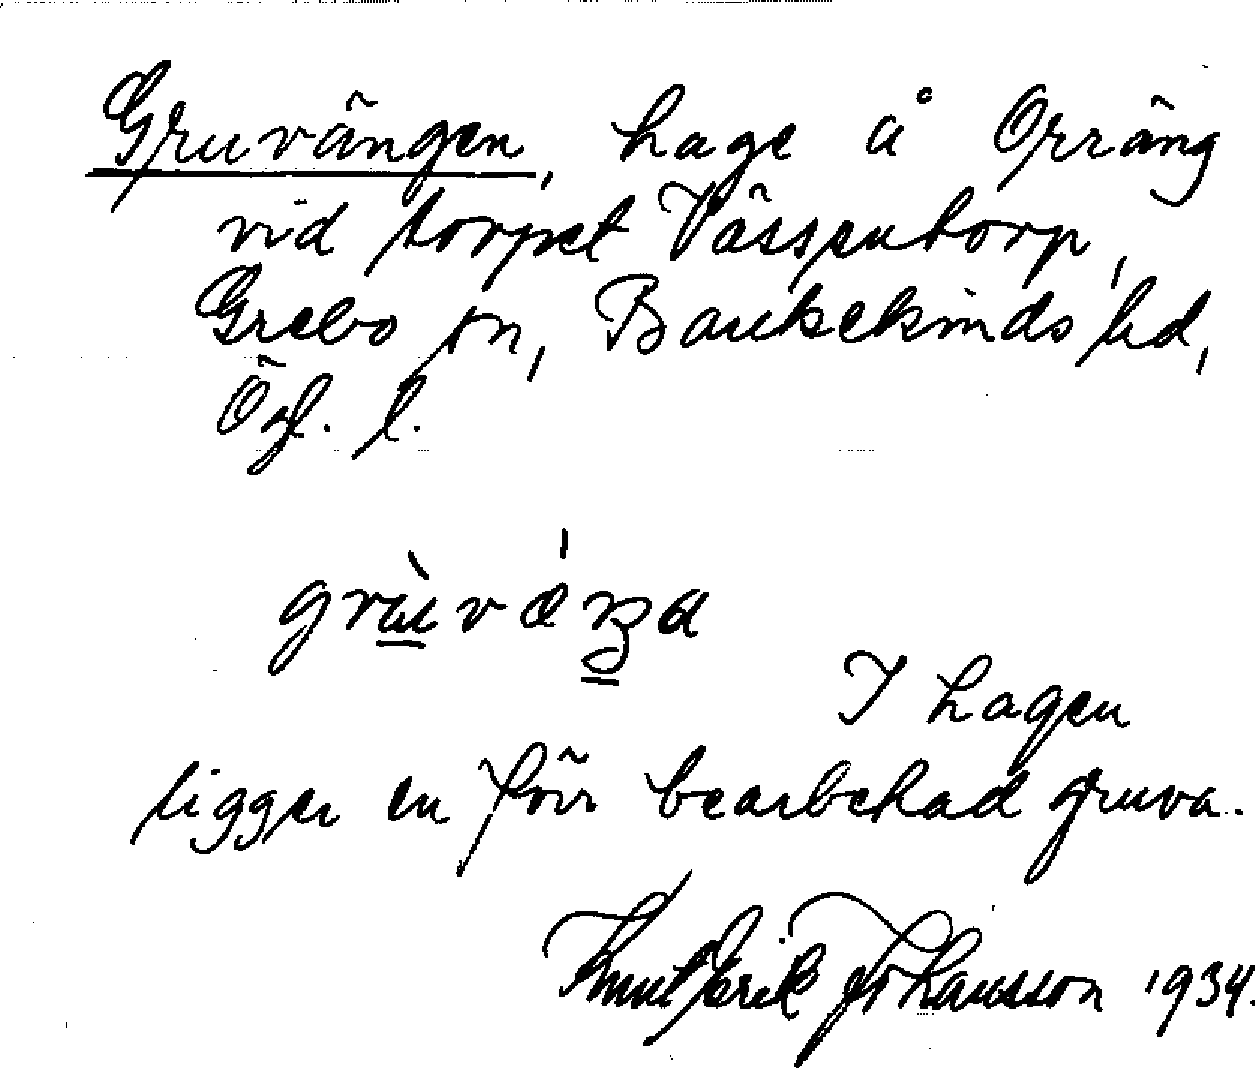 Gruvängen, hage å Orräng
vid torpet Vässentorp,
Grebo sn, Bankekinds hd,
Ög. l.
grùvǽŋa
I hagen
ligger en förr bearbetad gruva.
Knut Erik Johansson 1934.